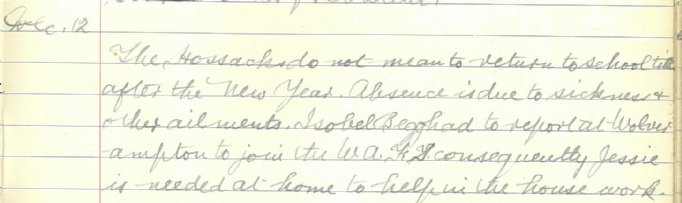 Dec. 12
The Hossacks do not mean to return to school till
after the New Year. Absence is due to sickness &
other ailments. Isobel Begg had to report at Wolver
-ampton to join the W.A.F.S consequently Jessie
is needed at home to help in the house work.